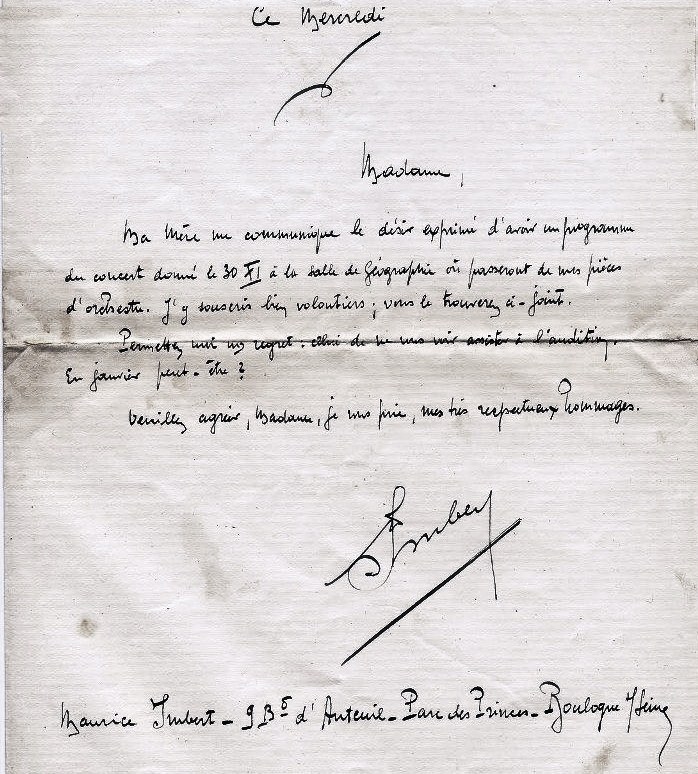 Ce Mercredi
Madame,
Ma Mère me communique le désir exprimé d'avoir un programme
du concert donné le 30 XI à la salle de Géographie où passeront de mes pièces
d'orchestre. J'y souscris bien volontiers ; vous le trouverez ci-joint.
Permettez moi un regret : celui de ne vous voir assister à l'audition.
En janvier peut-être ?
Veuillez agréer, Madame, je vous prie, mes très respectueux hommages.
Imbert
Maurice Imbert - 9 Bd d'Auteuil - Parc des Princes - Boulogne s/Seine